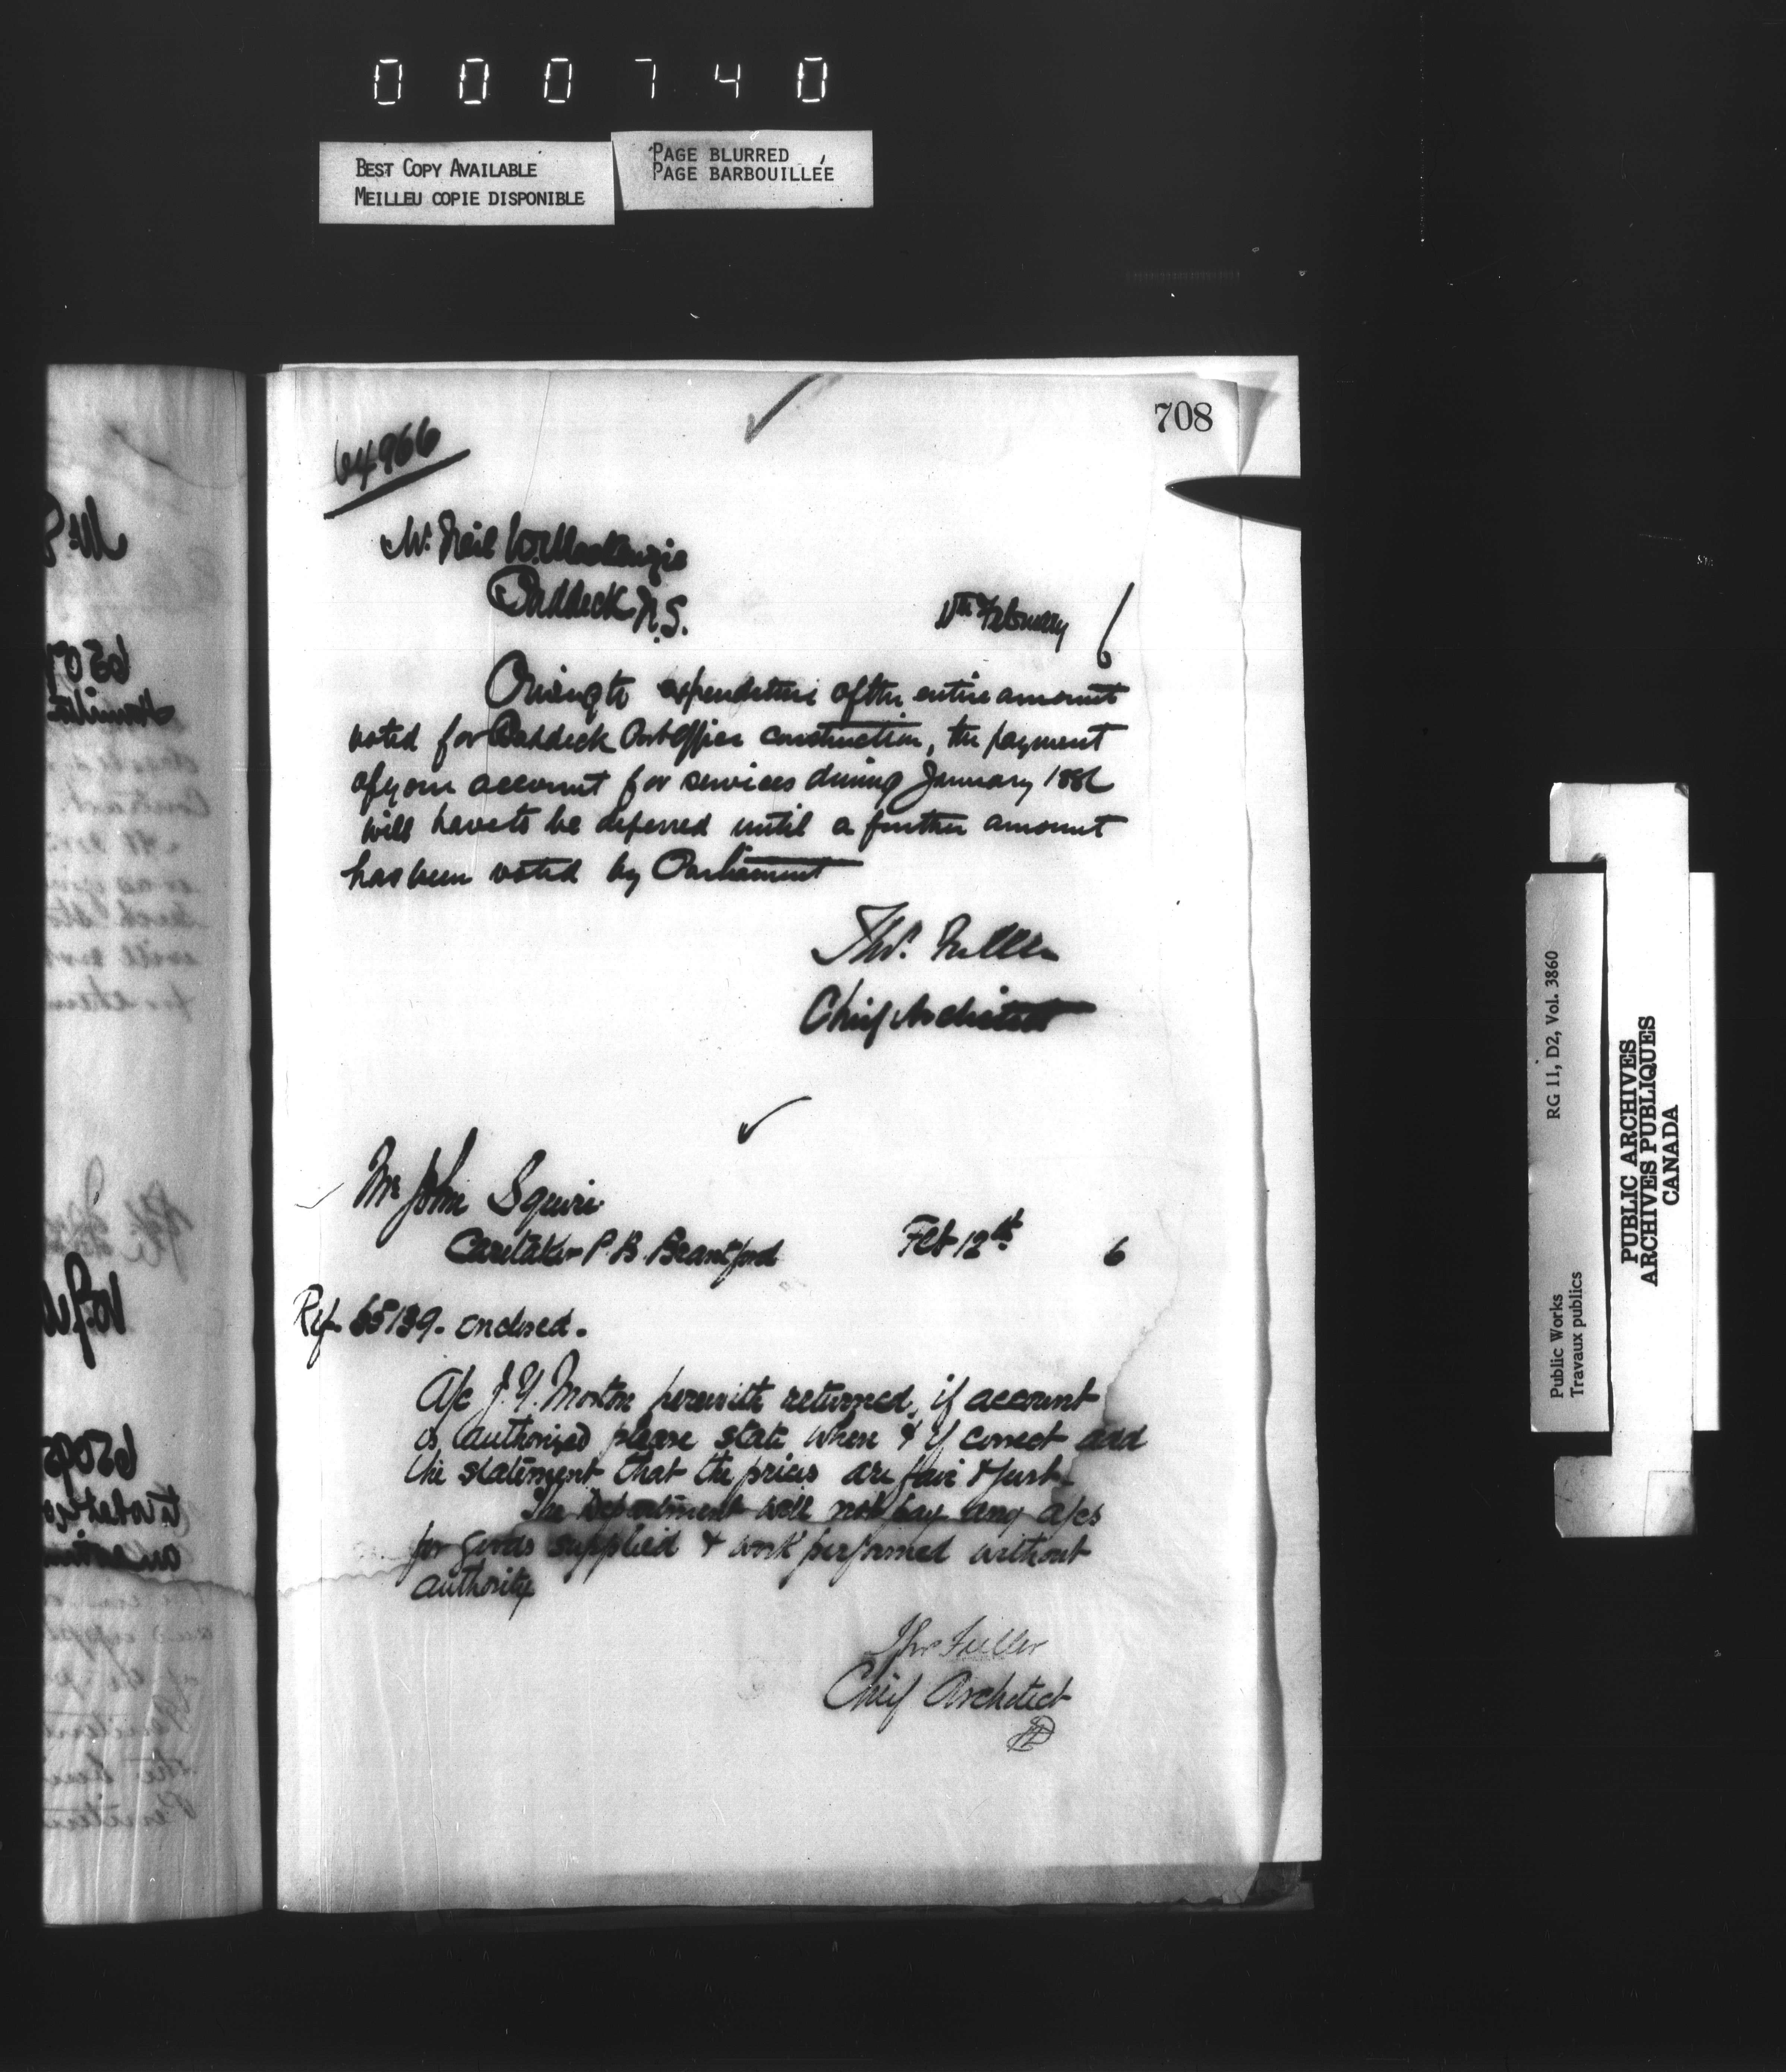 000740
BEST COPY AVAILABLE
MEILLEU COPIE DISPONIBLE
PAGE BLURRED
PAGE BARBOUILLÉE
708
64966
Mr. Neil W. MacKenzie
Baddeck N.S.
11th February 6
Owing to expenditure of the entire amount
voted for Baddeck Post Office construction, the payment
of your account for services during January 1886
will have to be deferred until a further amount
has been voted by Parliament
Thos. Fuller
Chief Architect
Mr John Squire
Caretaker P. B. Brantford
Feb 12th 6
Ref 65139. enclosed.
A/c J. Y. Morton herewith returned, if account
is authorized please state when & if correct add
the statement that the prices are fair & just
The Department will not pay any a/cs
for goods supplied & work performed without
authority
Thos Fuller
Chief Architect
RG 11, D2, Vol. 3860
Public Works
Travaux publics
PUBLIC ARCHIVES
ARCHIVES PUBLIQUES
CANADA